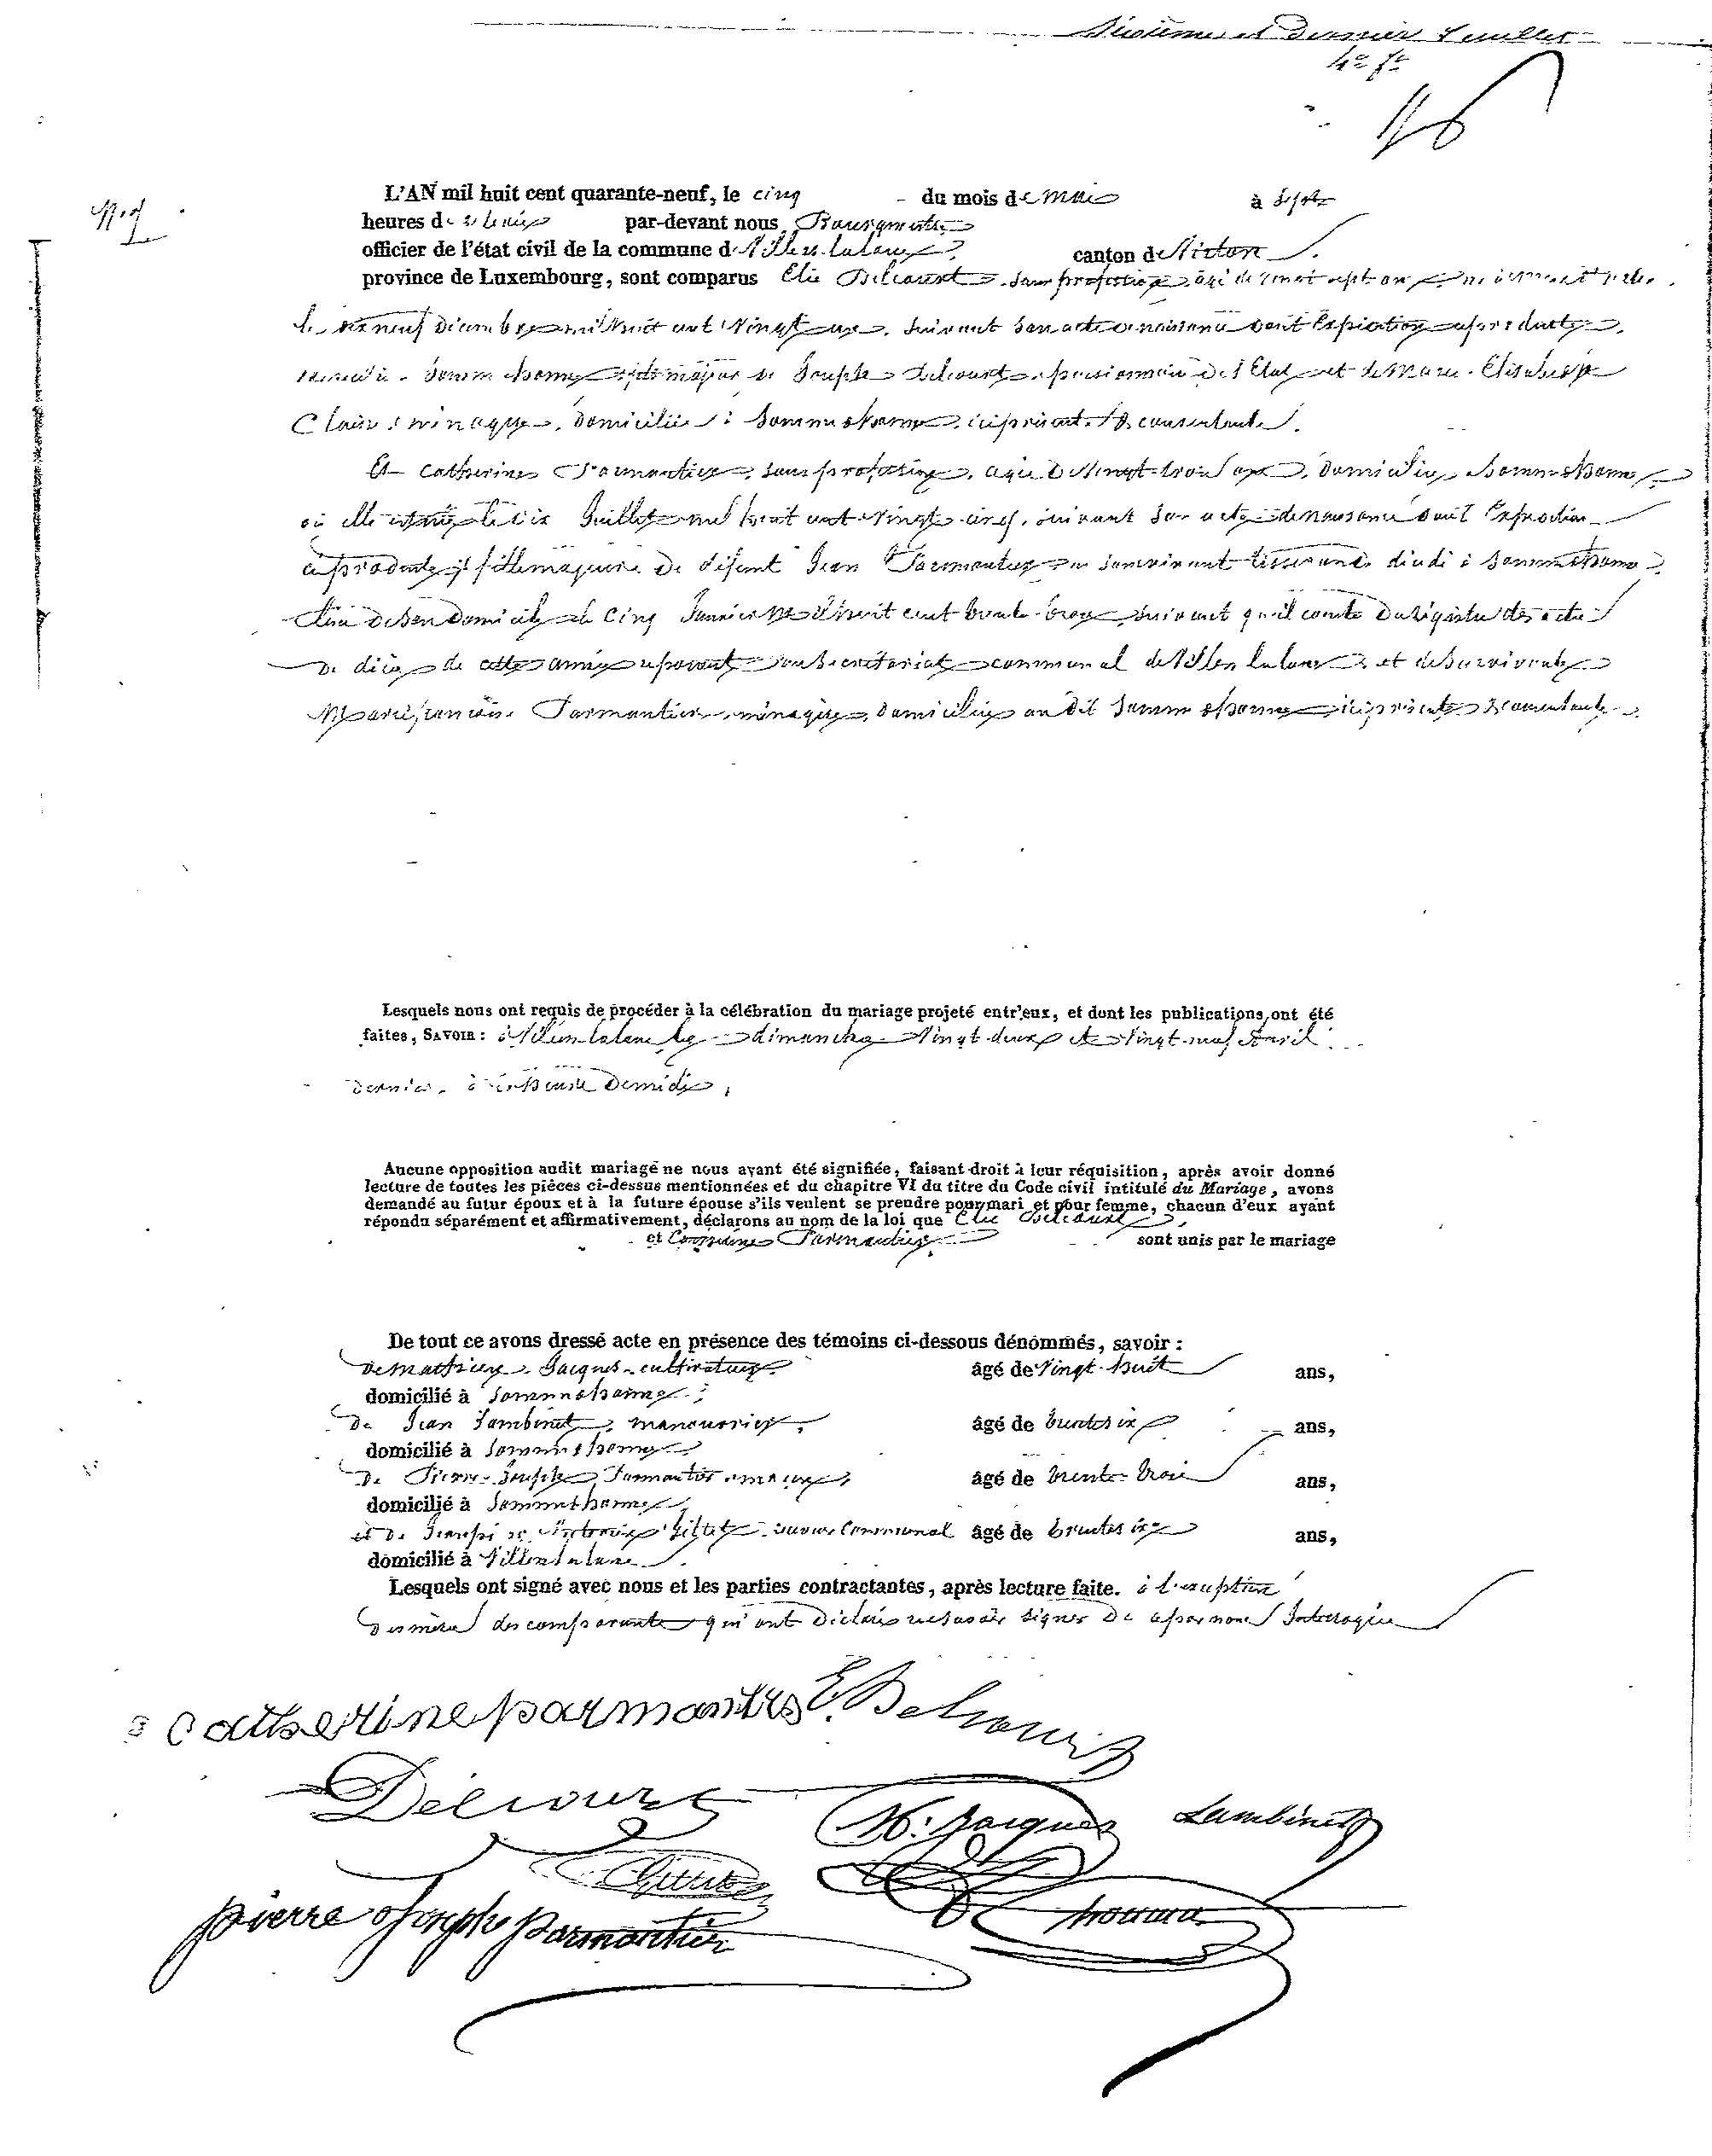 Sixième et dernier feuillet
L'AN mil huit cent quarante-neuf, le cinq du mois de mai à sept
heures du matin par-devant nous Bourgmestre
officier de l'état civil de la commune de Villers la loue canton de Virton
province de Luxembourg, sont comparus Elie Delcourt, sans profession, âgé de vingt sept ans
le neuf Décembre mil huit cent vingt un, suivant son acte de naissance dont l'expédition
Sommethonne, fils majeur de Joseph Delcourt, pensionnaire de l'Etat et de Marie Elisabeth
Claire, ménagère, domiciliés à Sommethonne, ici présents & consentants.
Et Catherine Parmentier, sans profession, agée de vingt-trois ans, domiciliée à Sommethonne
où elle est née le dix Juillet mil huit cent vingt cinq, suivant son acte de naissance dont l'expédition
ci produite; fille majeure de défunt Jean Parmentier en son vivant tisserand décédé à Sommethonne
lieu de son domicile le cinq Janvier mil huit cent trente trois, suivant qu'il conste du régistre des actes
de décès de cette année reposant au secrétariat communal de Villers la loue et de survivante
Marie Parmentier, ménagère, domiciliée au dit Sommethonne, ici présente & consentante.
Lesquels nous ont requis de procéder à la célébration du mariage projeté entr'eux, et dont les publications ont été
faites, SAVOIR: à Villers la loue les dimanche vingt deux et vingt neuf avril
dernier, à heure de midi,
Aucune opposition audit mariage ne nous ayant été signifiée, faisant droit à leur réquisition, après avoir donné
lecture de toutes les pièces ci-dessus mentionnées et du chapitre VI du titre du Code civil intitulé du Mariage, avons
demandé au futur époux et à la future épouse s'ils veulent se prendre pour mari et pour femme, chacun d'eux ayant
répondu séparément et affirmativement, déclarons au nom de la loi que Elie Delcourt
et Catherine Parmentier sont unis par le mariage
De tout ce avons dressé acte en présence des témoins ci-dessous dénommés, savoir:
de Mathieu Jacques, cultivateur âgé de vingt-huit ans,
domicilié à Sommethonne;
De Jean Lambinet, manouvrier, âgé de trente six ans,
domicilié à Sommethonne
De Pierre-Joseph Parmentier âgé de trente-trois ans,
domicilié à Sommethonne
et de communal âgé de trente six ans,
domicilié à Villers la loue
Lesquels ont signé avec nous et les parties contractantes, après lecture faite. à l'exception
des mères des comparants qui ont déclaré ne savoir signer de ce par nous Interrogées
catherine parmantier E. Delcourt
Delcourt M: Jacques Lambinet
pierre joseph parmentier